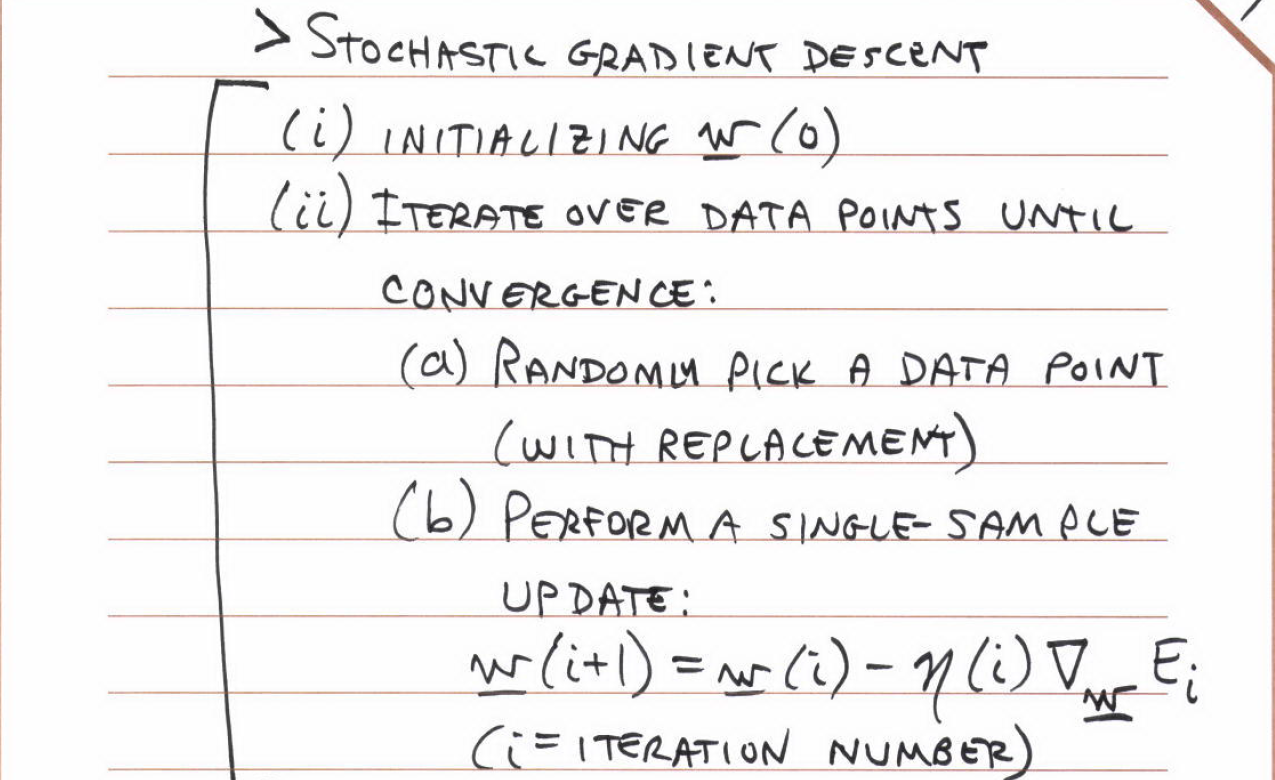 > STOCHASTIC GRADIENT DESCENT
(i) INITIALIZING w(0)
(ii) ITERATE OVER DATA POINTS UNTIL
CONVERGENCE:
(a) RANDOMLY PICK A DATA POINT
(WITH REPLACEMENT)
(b) PERFORM A SINGLE-SAMPLE
UPDATE:
w(i+1) = w(i) - η(i) ∇_w E_i
(i = ITERATION NUMBER)